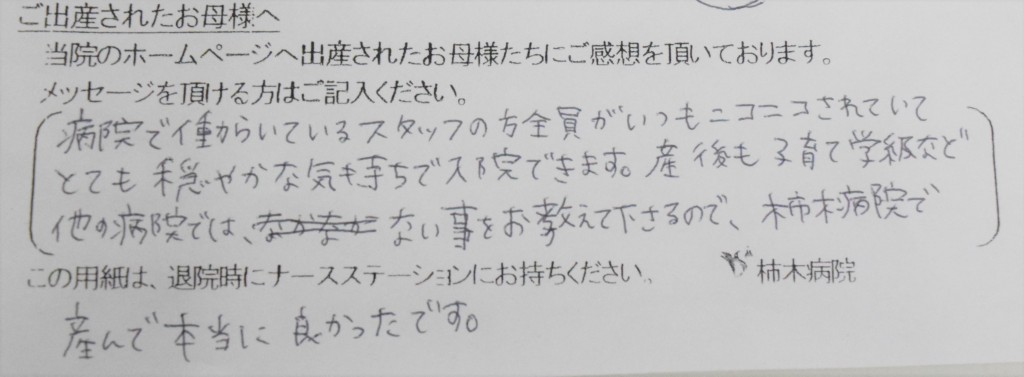 ご出産されたお母様へ
当院のホームページへ出産されたお母様たちにご感想を頂いております。
メッセージを頂ける方はご記入ください。
病院で働らいているスタッフの方全員がいつもニコニコされていて
とても穏やかな気持ちで入院できます。産後も子育て学級など
他の病院では、なかなか ない事をお教えて下さるので、柿木病院で
この用紙は、退院時にナースステーションにお持ちください。
柿木病院
産んで本当に良かったです。